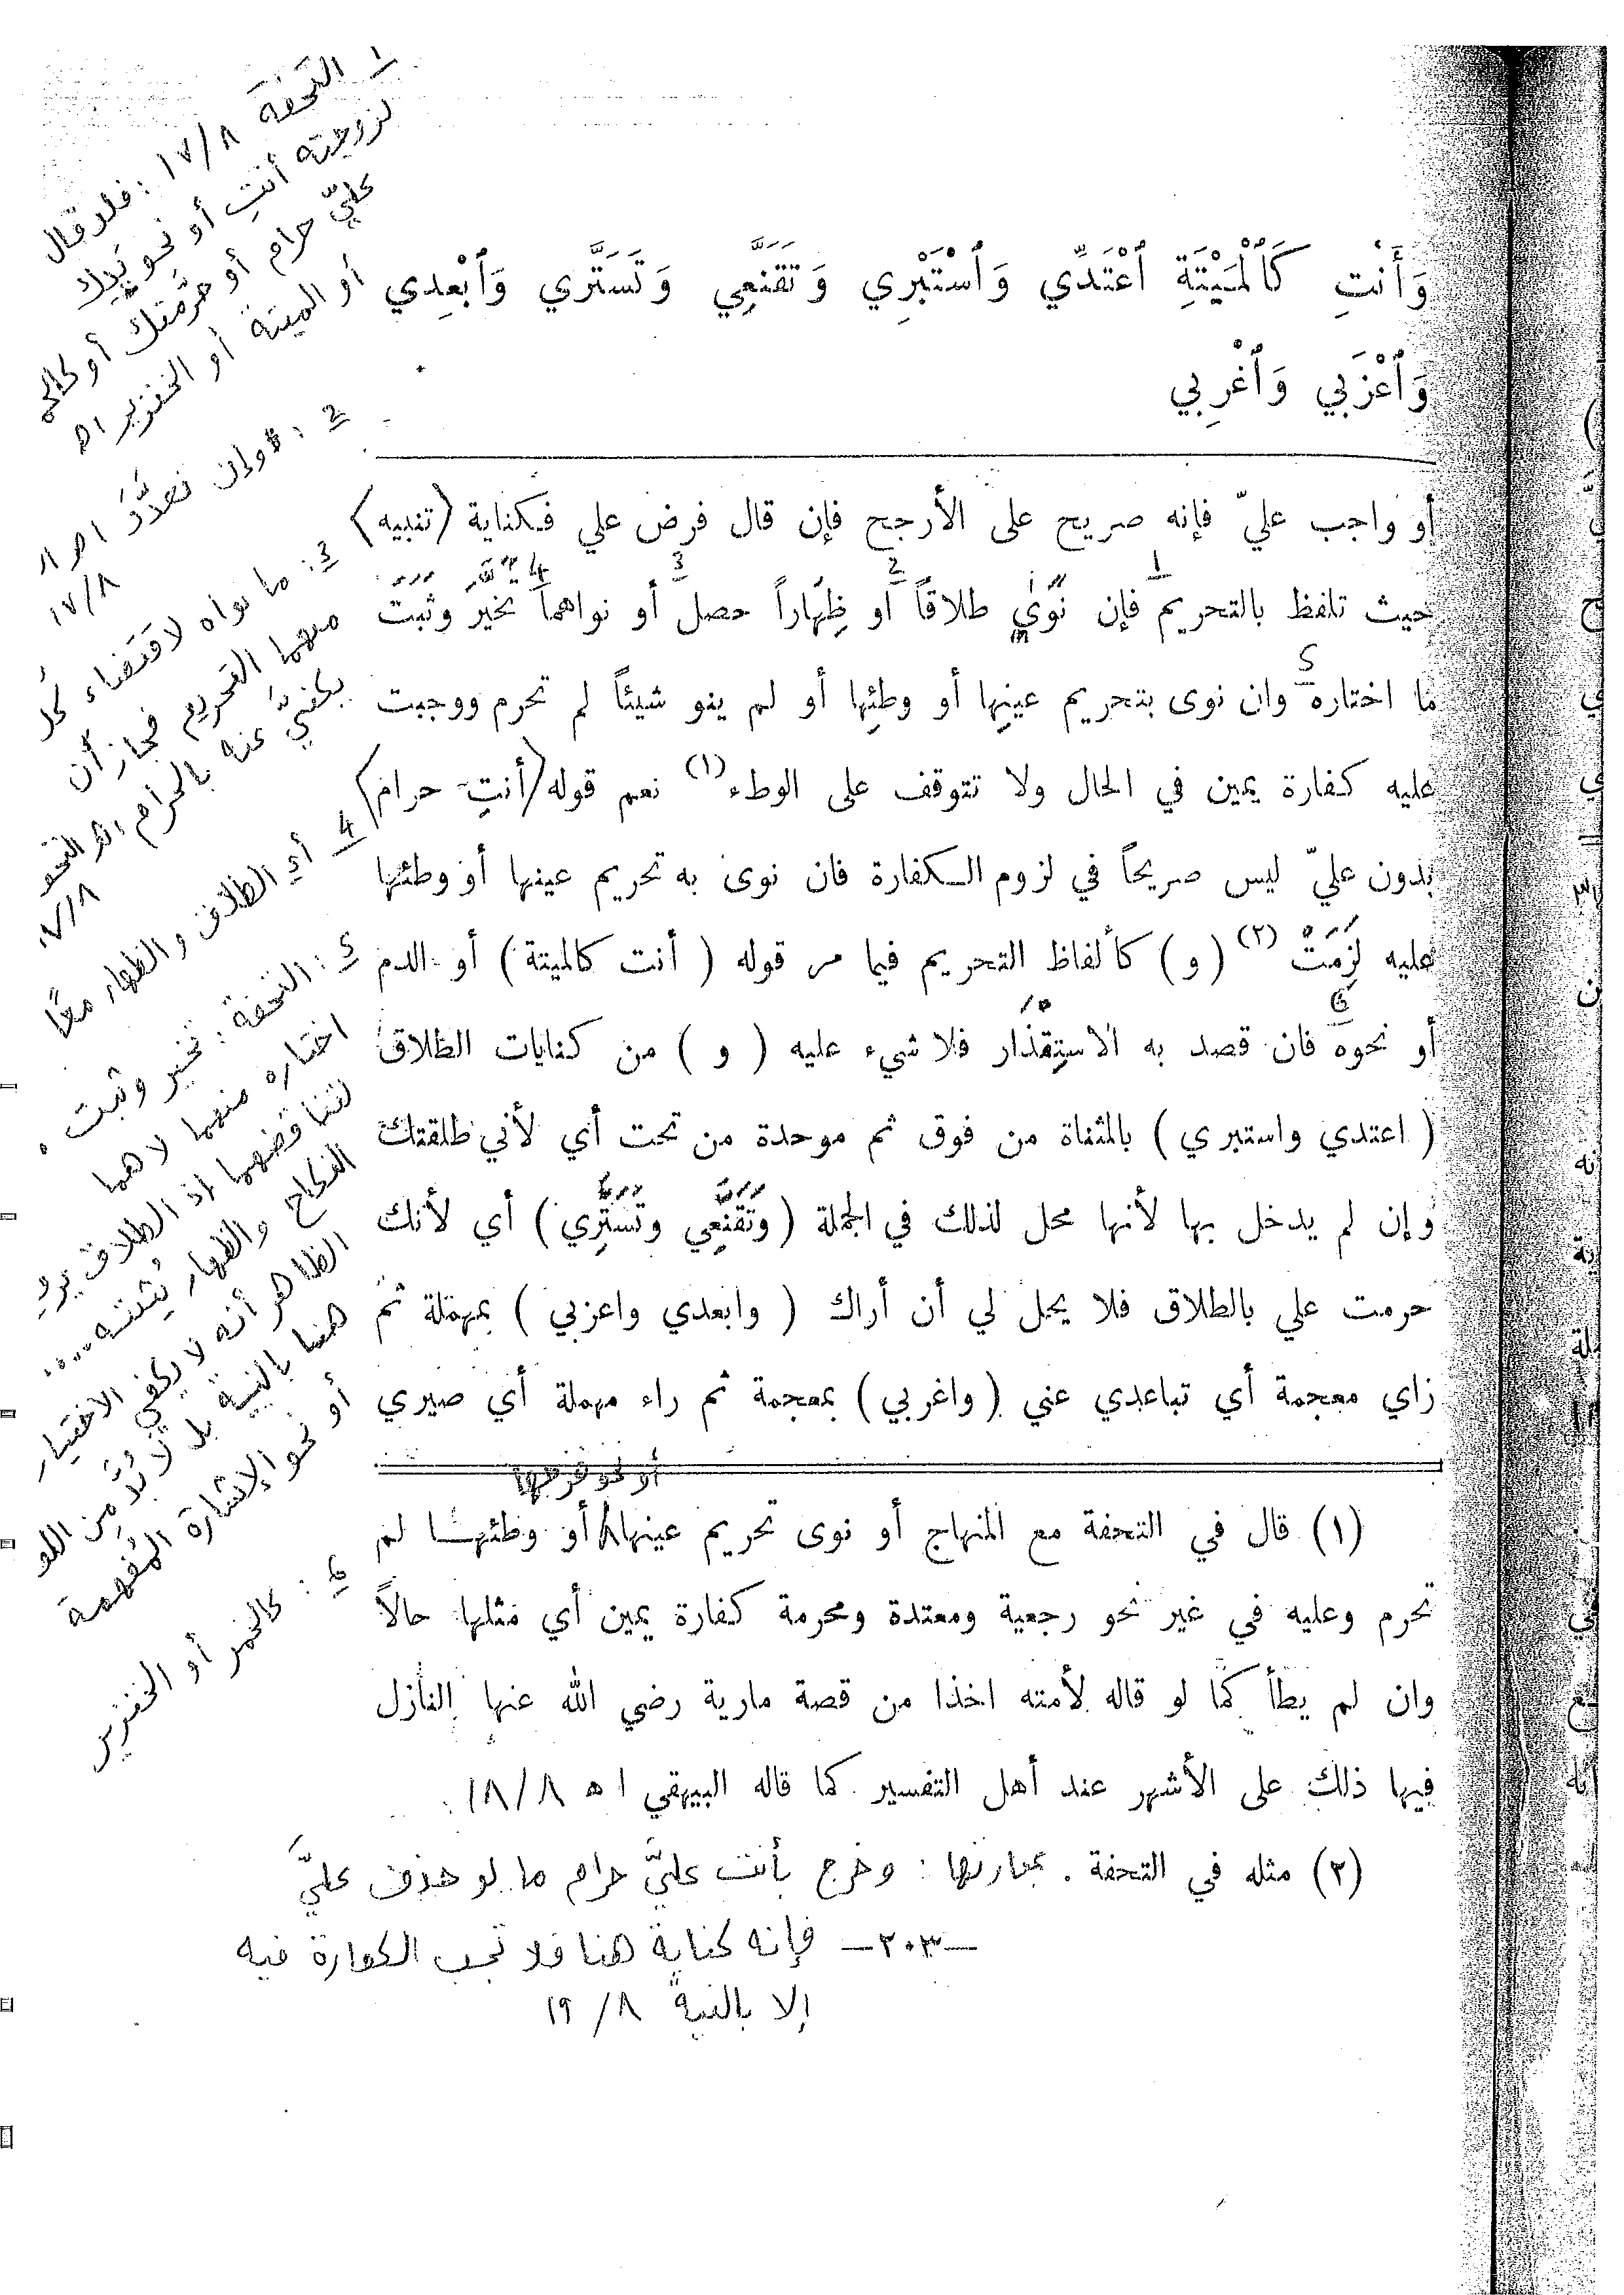 وَأَنْتِ كَٱلْمَيْتَةِ ٱعْتَدِّي وَٱسْتَبْرِي وَتَقَنَّعِي وَتَسَتَّرِي وَٱبْعِدِي
وَٱعْزُبِي وَٱغْرِبِي
أو واجب عليّ فإنه صريح على الأرجح فإن قال فرض علي فكناية (تنبيه)
حيث تلفظ بالتحريم فإن نَوَى طلاقاً أو ظِهَاراً حصل أو نواهما تخيَّر وثَبَتَ
ما اختاره وان نوى بتحريم عينها أو وطئها أو لم ينو شيئاً لم تحرم ووجبت
عليه كفارة يمين في الحال ولا تتوقف على الوطء (١) نعم قوله (أنتِ حرام)
بدون عليّ ليس صريحاً في لزوم الكفارة فان نوى به تحريم عينها أو وطئها
عليه لَزِمَتْ (٢) (و) كألفاظ التحريم فيما مر قوله (أنت كالميتة) أو الدم
أو نحوه فان قصد به الاستِقْذار فلا شيء عليه (و) من كنايات الطلاق
(اعتدي واستبري) بالمثناة من فوق ثم موحدة من تحت أي لأني طلقتك
وإن لم يدخل بها لأنها محل لذلك في الجملة (وتَقَنَّعِي وتَسَتَّرِي) أي لأنك
حرمت علي بالطلاق فلا يحل لي أن أراك (وابعدي واعزبي) بمهملة ثم
زاي معجمة أي تباعدي عني (واغربي) بمعجمة ثم راء مهملة أي صيري
أو نحو فرجها
(١) قال في التحفة مع المنهاج أو نوى تحريم عينها أو وطئها لم
تحرم وعليه في غير نحو رجعية ومعتدة ومحرمة كفارة يمين أي مثلها حالاً
وان لم يطأ كما لو قاله لأمته اخذا من قصة مارية رضي الله عنها النازل
فيها ذلك على الأشهر عند أهل التفسير كما قاله البيهقي اه ١٨/٨
(٢) مثله في التحفة . عبارتها : وخرج بأنت عليَّ حرام ما لو حذف عليَّ
فإنه كناية هنا فلا تجب الكفارة فيه
إلا بالنية ١٩/٨
—٣٠٣—
1 التحفة ١٧/٨ : فلو قال
لزوجته أنتِ أو نحو يدِك
عليّ حرام أو حرَّمتك أو كالخمر
أو الميتة أو الخنزير اه
2 : وإن تعدَّدَ
١٧/٨
3 : ما نواه لاقتضاء كل
منهما التحريم فجاز أن
يكنيَ عنه بالحرام اه التحفة
١٧/٨
4 أي الطلاق والظهار معًا
5 : التحفة : تخير وثبت
اختاره منهما لا هما
لتناقضهما إذ الطلاق يزيل
النكاح والظهار يثبته ....
الظاهر أنه لا يكفي الاختيار
هنا بالنية بل لا بُدَّ مِن اللفظ
أو نحو الإشارة المُفهِمة
6 : كالخمر أو الخنزير